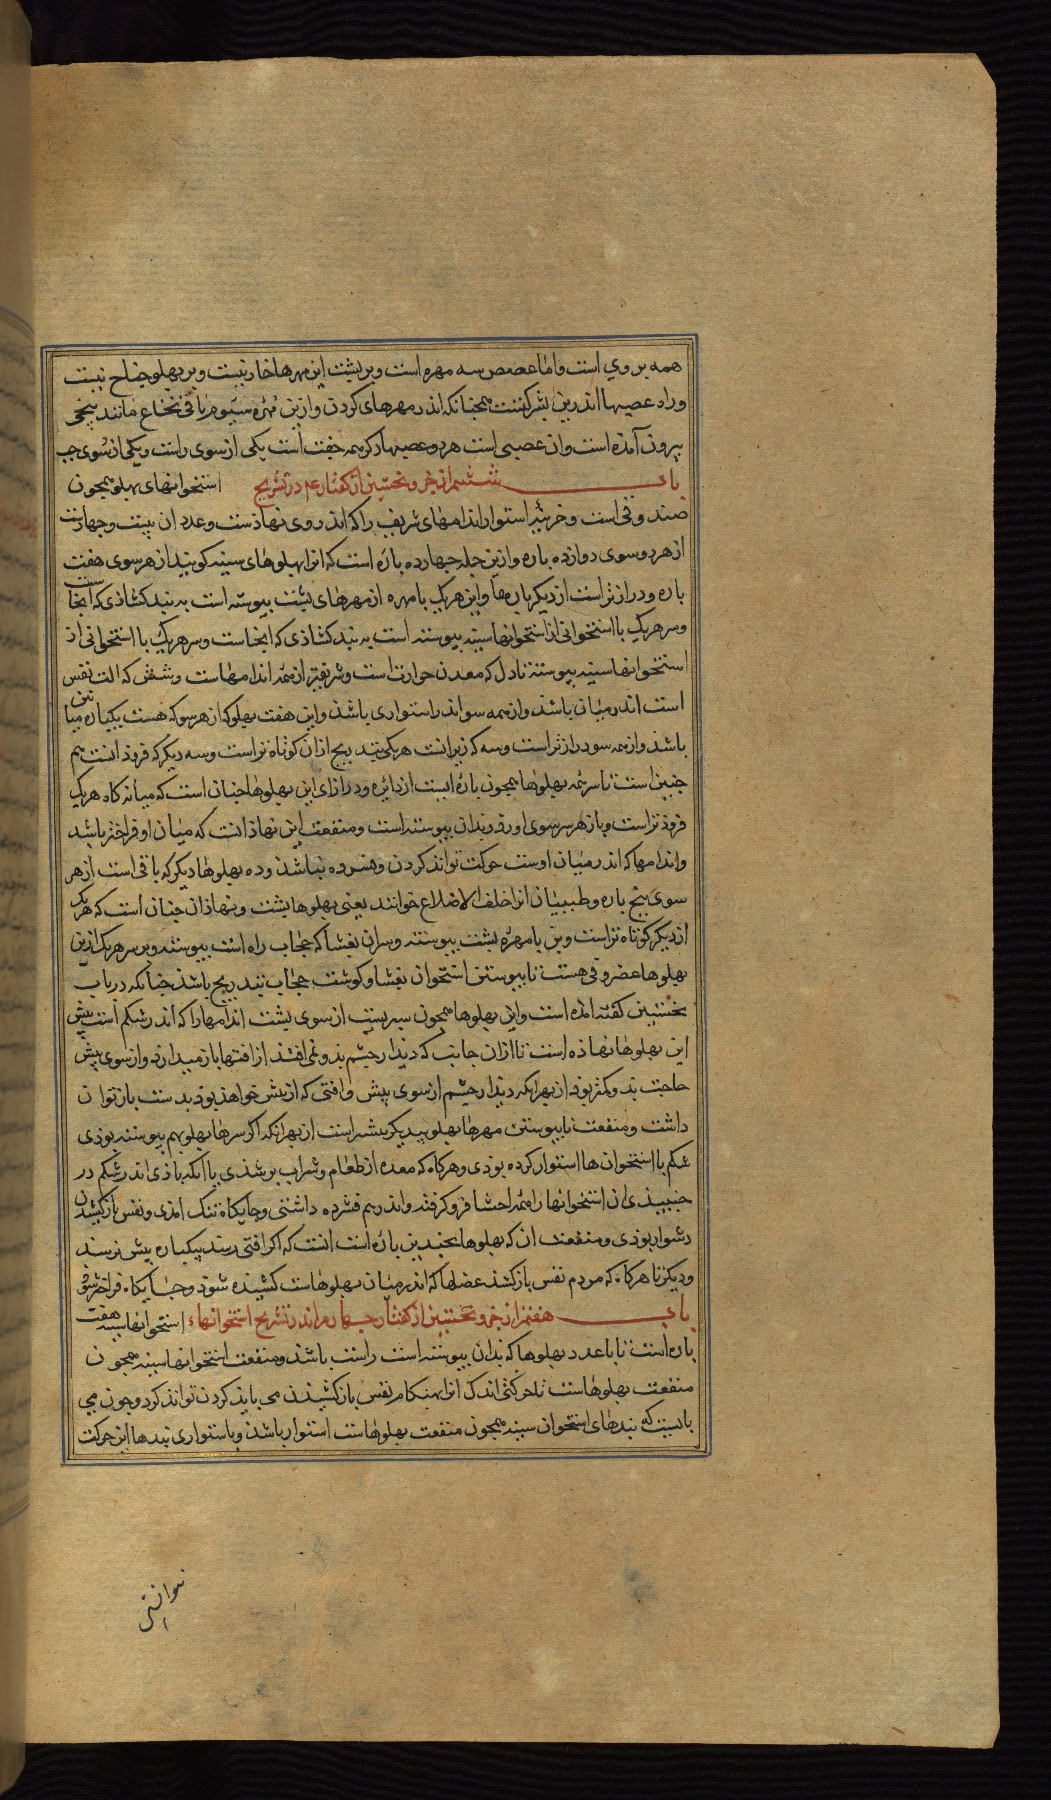 همه بروی است واما عصعص سه مهره است وبر پشت این مهرها خار نیست وبر پهلو جناح نیست
وراه عصبها اندرین بشرکتست همچنانکه اندر مهرهای کردن وازین مهره سیوم باقی نخاع مانند بیخی
بیرون آمده است وان عصبی است هر دو عصبها دکر همه جفت است یکی از سوی راست ویکی از سوی جب
باب ششم از جزو نخستین از کفتار ۴ در تشریح استخوانهای بهلو همجون
صندوقی است وخزینه استوار اندامهای شریف را که اندر وی نهادست وعدد ان بیست وجهارست
از هر دو سوی دوازده باره وازین جمله جهارده باره است که انرا بهلوهای سینه کویند از هر سوی هفت
باره ودرازتر است از دیکر بارها واین هر یک با مهره از مهرهای پشت بیوسته است به بند کشادی که انجاست
وسر هر یک با استخوانی از استخوانها سینه بیوسته است به بند کشادی که انجاست وسر هر یک با استخوانی از
استخوانها سینه بیوسته تا دل که معدن حرارت است وشریفتر از همه اندامهاست وشش که الت نفس
است اندر میان باشد وازهمه سو اندر استواری باشد واین هفت بهلو که از هر سو که هست یکباره میانین
باشد وازهمه سو درازتر است وسه که زبر انست هر یکی بتدریج ازان کوتاه تر است وسه دیکر که فروذ انست هم
جنین است تا سر همه بهلوها همچون باره ایست از دایره ودرازای این بهلوها جنان است که میانه کاه هر یک
فروذ تر است وباز هر سر سوی اورد وبدان بیوسته است ومنفعت این نهاد انست که میان او فراختر باشد
واندامها که اندر میان اوست حرکت تواند کردن وفسرده نباشد وده بهلوها دیکر که باقی است از هر
سوی بنج باره وطبیبان انرا خلف الاضلاع خوانند یعنی بهلوها پشت ونهاد ان جنان است که هر یک
از دیکر کوتاه تر است وبن با مهره پشت بیوسته وسر ان بغشا که حجاب راه است بیوسته وبر سر هر یک ازین
بهلوها غضروفی هست تا بیوستن استخوان بغشا وکوشت حجاب بتدریج باشد جنانکه در باب
نخستین کفته امده است واین بهلوها همجون سبریست از سوی پشت اندامها را که اندر شکم است بیش
این بهلوها نهاده است تا ازان جانب که دیدار چشم بدو نمی افتد از افتها باز میدارد واز سوی پیش
حاجت بدو کمتر بود از بهر انکه دیدار چشم از سوی پیش وافتی که از پیش خواهد بود بدست باز توان
داشت ومنفعت نابیوستن مهرها بهلو بیدیکر بیشتر است از بهر انکه اکر سرها بهلو بهم بیوسته بودی
شکم با استخوان ها استوار کرده بودی وهرکاه که معده از طعام وشراب بر شدی یا انکه بادی اندر شکم در
جنبیدی ان استخوانها را همه احشا فرو کرفته واندر هم فشرده داشتی وجایکاه تنک امدی ونفس بازکشیدن
دشوار بودی ومنفعت ان که بهلوها بجندین باره است انست که اکر افتی رسد بیکباره بیش نرسد
ودیکر تا هرکاه که مردم نفس باز کشد عضلها که اندر میان بهلوهاست کشیده شود وجایکاه فراختر شود
باب هفتم از جزو نخستین از کفتار جهارم اندر تشریح استخوانهاء استخوانها سینه هفت
باره است تا با عدد بهلوها که بدان بیوسته است راست باشد ومنفعت استخوانها سینه همچون
منفعت بهلوهاست تا حرکتی اندک انرا بهنکام نفس باز کشیدن می باید کردن تواند کرد وجون می
بایست که بندهای استخوان سینه همجون منفعت بهلوهاست استوار باشد وباستواری بندها این حرکت